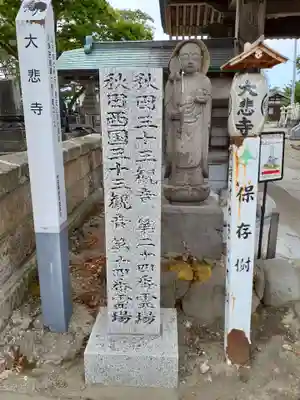 大悲寺
秋田三十三観音 第二十四番霊場
秋田西国三十三観音 第十四番霊場
大悲寺
保存樹